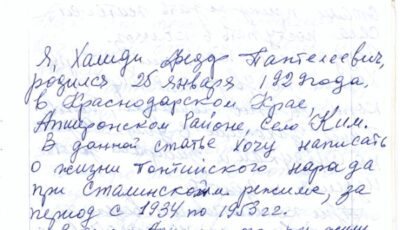 Я, Халиди Федор Пантелеевич,
родился 25 января 1929 года,
в Краснодарском Крае,
Апшеронском Районе, Село Ким.
В данной статье хочу написать
о жизни Понтийского народа
при Сталинском режиме, за
период с 1934 по 1953 гг.